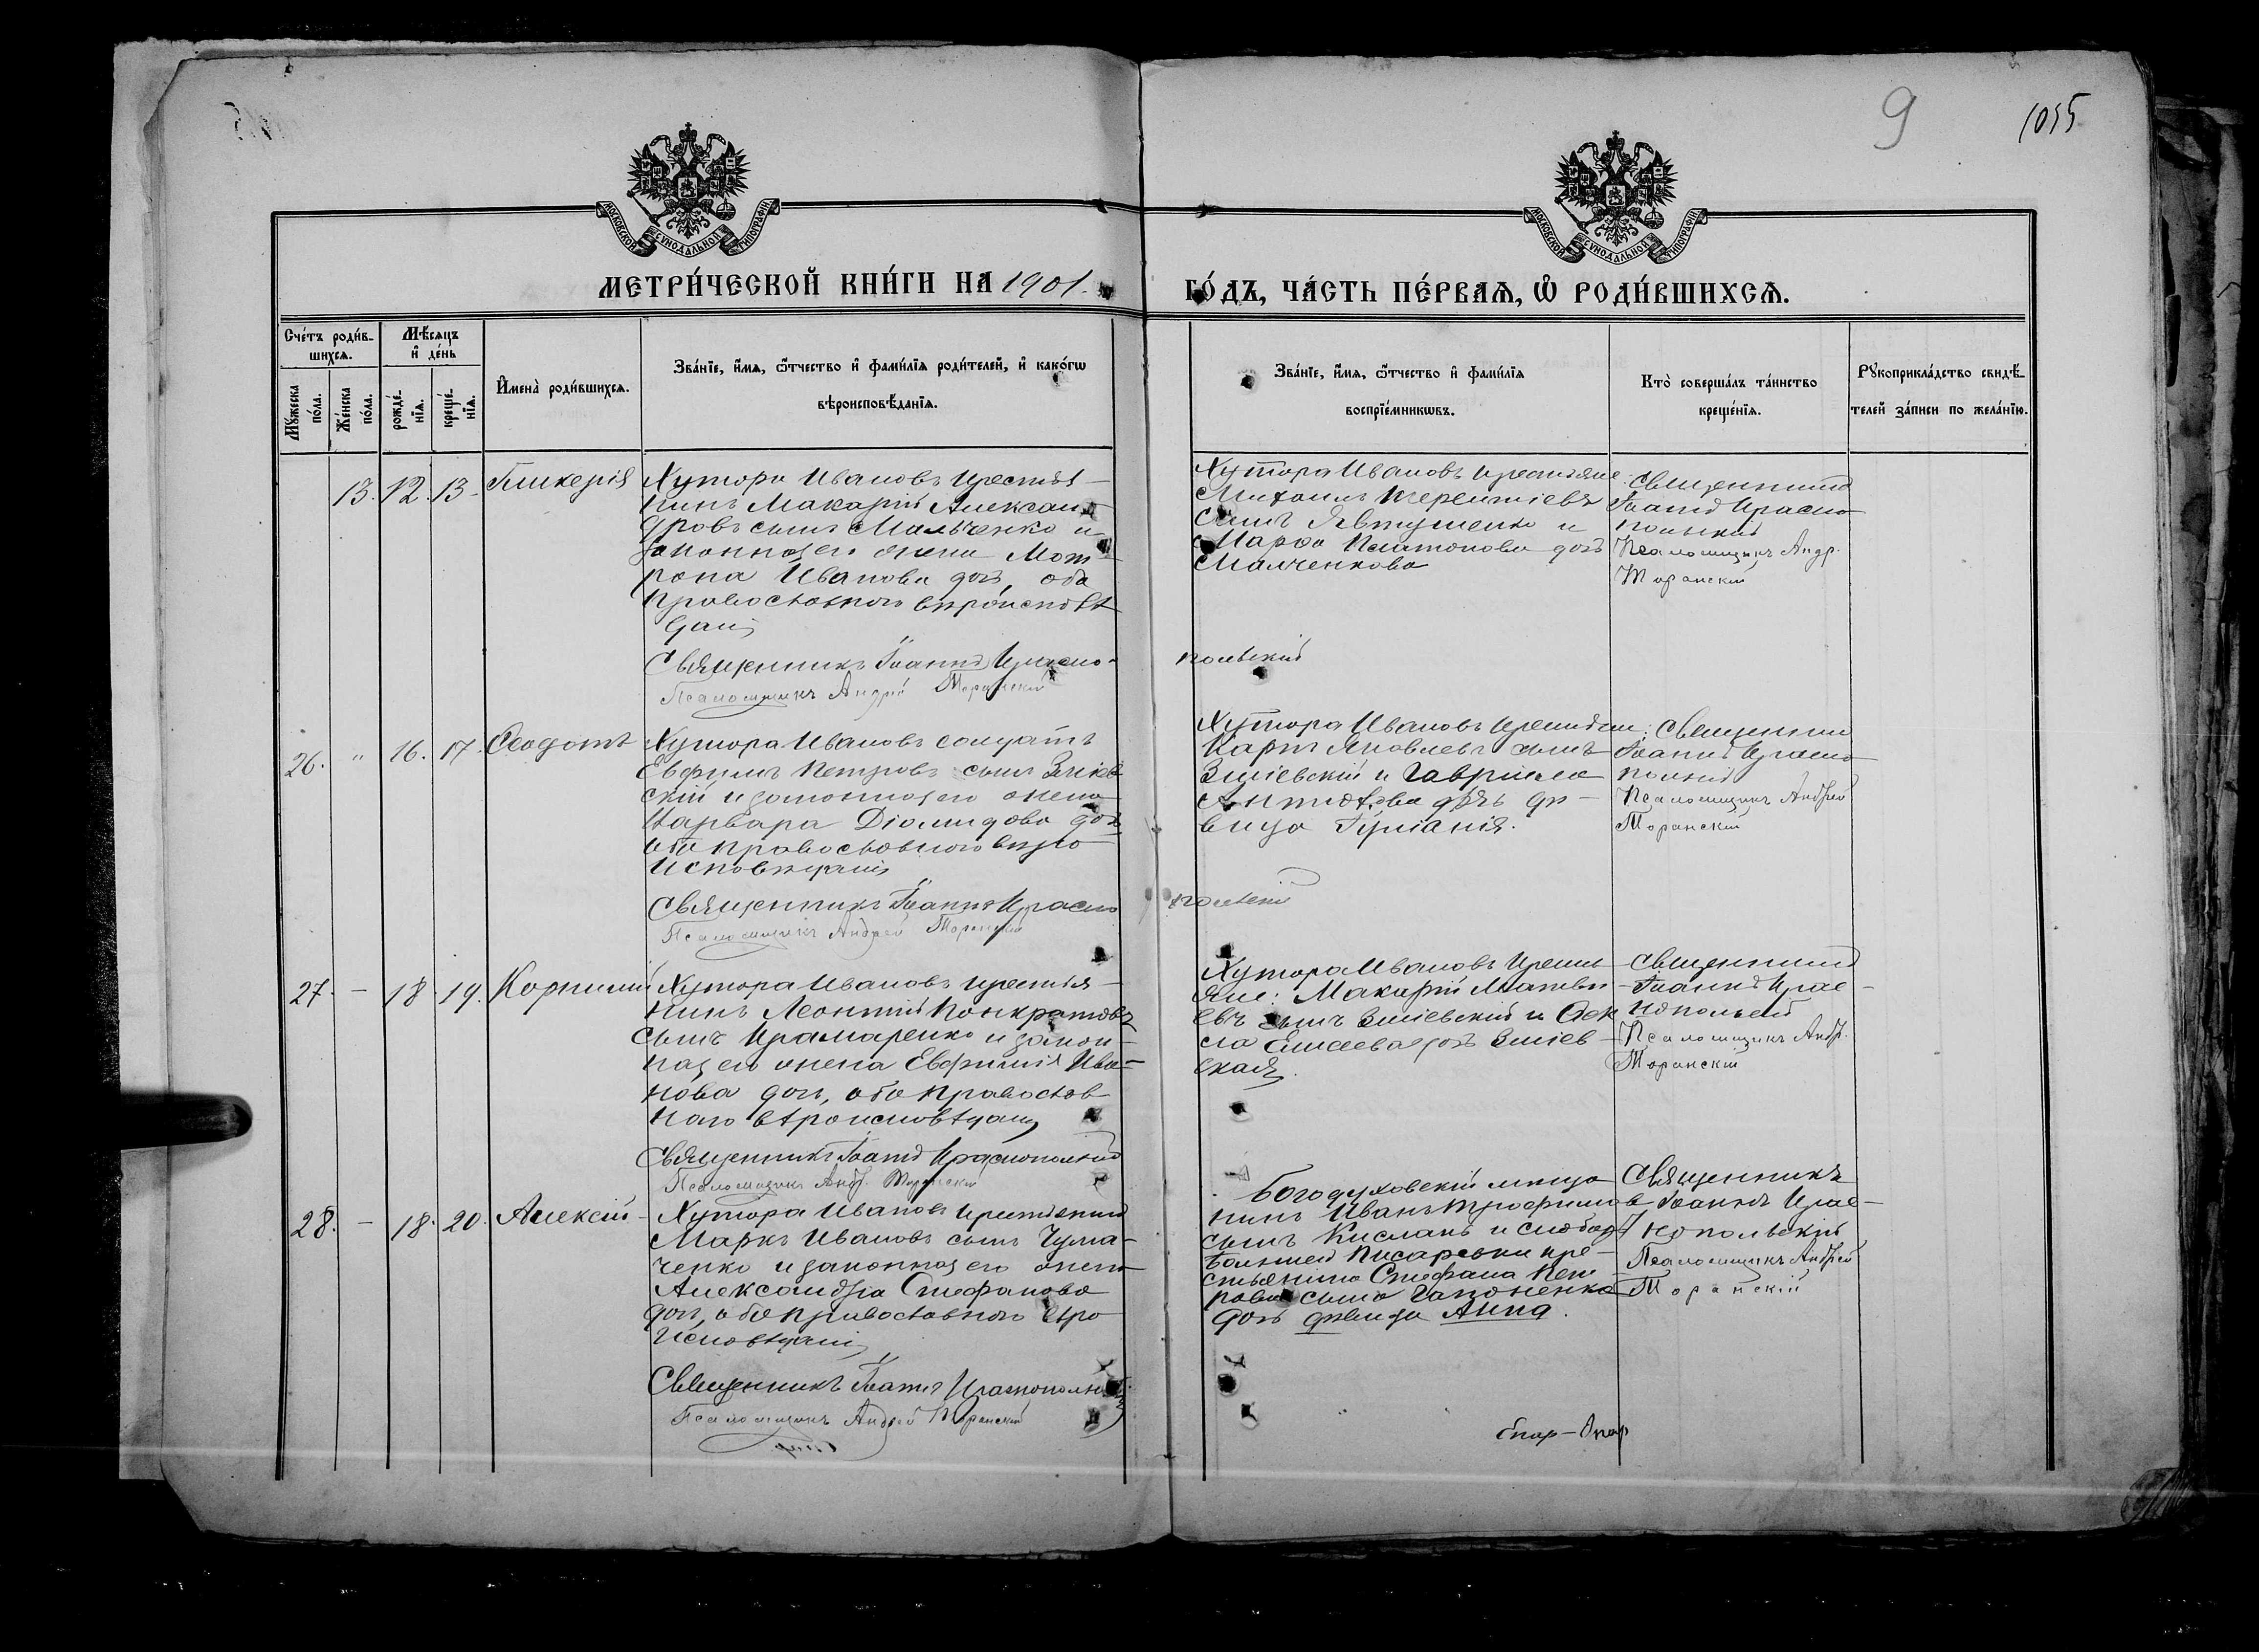 9
1015
МОСКОВСКОЙ СѴНОДАЛЬНОЙ ТИПОГРАФІИ
МОСКОВСКОЙ СѴНОДАЛЬНОЙ ТИПОГРАФІИ
МЕТРИ́ЧЕСКОЙ КНИ́ГИ НА 1901.
ГО́ДЪ, ЧА́СТЬ ПЕ́РВАѦ, Ѽ РОДИ́ВШИХСѦ.
Сче́тъ роди́в-
шихсѧ.
Мꙋ́жеска
по́ла.
Же́нска
по́ла.
Мѣ́сѧцъ
и҆ де́нь
рожде́-
нїѧ.
креще́-
нїѧ.
И҆мена̀ роди́вшихсѧ.
Зва́нїе, и҆́мѧ, ѻ҆́тчество и҆ фами́лїѧ роди́телей, и҆ како́гѡ
вѣроисповѣ́данїѧ.
Зва́нїе, и҆́мѧ, ѻ҆́тчество и҆ фами́лїѧ
воспрїе́мникѡвъ.
Кто̀ соверша́лъ та́инство
креще́нїѧ.
Рꙋкоприкла́дство свидѣ́-
телей за́писи по жела́нїю.
13. 12. 13. Гликерія
Хутора Ивановъ крестья-
нинъ Макарій Алексан-
дровъ сынъ Мальченко и
законная его жена Мот-
рона Иванова дочь, оба
православного вероисповѣ
даній
Священникъ Іоаннъ Красно-
польскій
Псаломщикъ Андрей Торанскій
Хутора Ивановъ крестьяне:
Михаилъ Терентіевъ
сынъ Явтушенко и
Марѳа Платонова дочь
Малченкова
Священникъ
Іоаннъ Красно
польскій
Псаломщикъ Андр.
Торанскій
26. " 16. 17. Ѳеодотъ
Хутора Ивановъ солдатъ
Евфимъ Петровъ сынъ Зміев
скій и законная его жена
Варвара Діомидова дочь
оба православного веро
исповеданія
Священникъ Іоаннъ Красно
польскій
Псаломщикъ Андрей Торанскій
Хутора Ивановъ крестьяне:
Карпъ Яковлевъ сынъ
Зміевскій и Гавріила
дочь де-
вица Іуліанія.
Священникъ
Іоаннъ Красно
польскій
Псаломщикъ Андрей
Торанскій
27. - 18. 19. Корнилій
Хутора Ивановъ крестья-
нинъ Леонтій Понкратовъ
сынъ Крамаренко и закон-
ная его жена Евфимія Ива-
нова дочь, оба православ
наго вѣроисповѣданія
Священникъ Іоаннъ Краснопольскій
Псаломщикъ Андр. Торанскій
Хутора Ивановъ кресть
яне: Макарій Матвѣ
евъ сынъ Зміевскій и Ѳек
ла Елисеева дочь Зміев
ская.
Священникъ
Іоаннъ Крас-
нопольскій
Псаломщикъ Андр.
Торанскій
28. - 18. 20. Алексій
Хутора Ивановъ крестьянинъ
Маркъ Ивановъ сынъ Чума-
ченко и законная его жена
Александра Стефанова
дочь, оба православного вѣро
исповѣданія
Священникъ Іоаннъ Краснопольскій
Псаломщикъ Андрей Торанскій
Богодуховскій меща
нинъ Иванъ Трофимов
сынъ Кислань и слободы
Большей Писаревки кре-
стьянина Стефана Пет
рова сына Гапоненка
дочь девица Анна.
Священникъ
Іоаннъ Крас-
нопольскій
Псаломщикъ Андрей
Торанскій